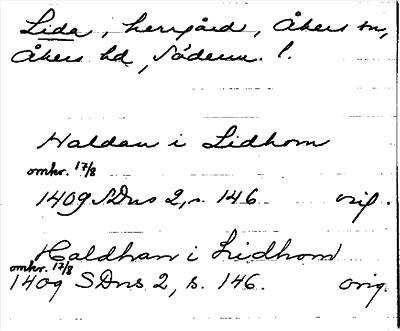 Lida, herrgård, Åkers sn,
Åkers hd, Söderm. l.
Haldan i Lidhom
omkr. 17/8
1409 SDns 2, s. 146 orig.
Haldhan i Lidhom
omkr. 17/8
1409 SDns 2, s. 146. orig.